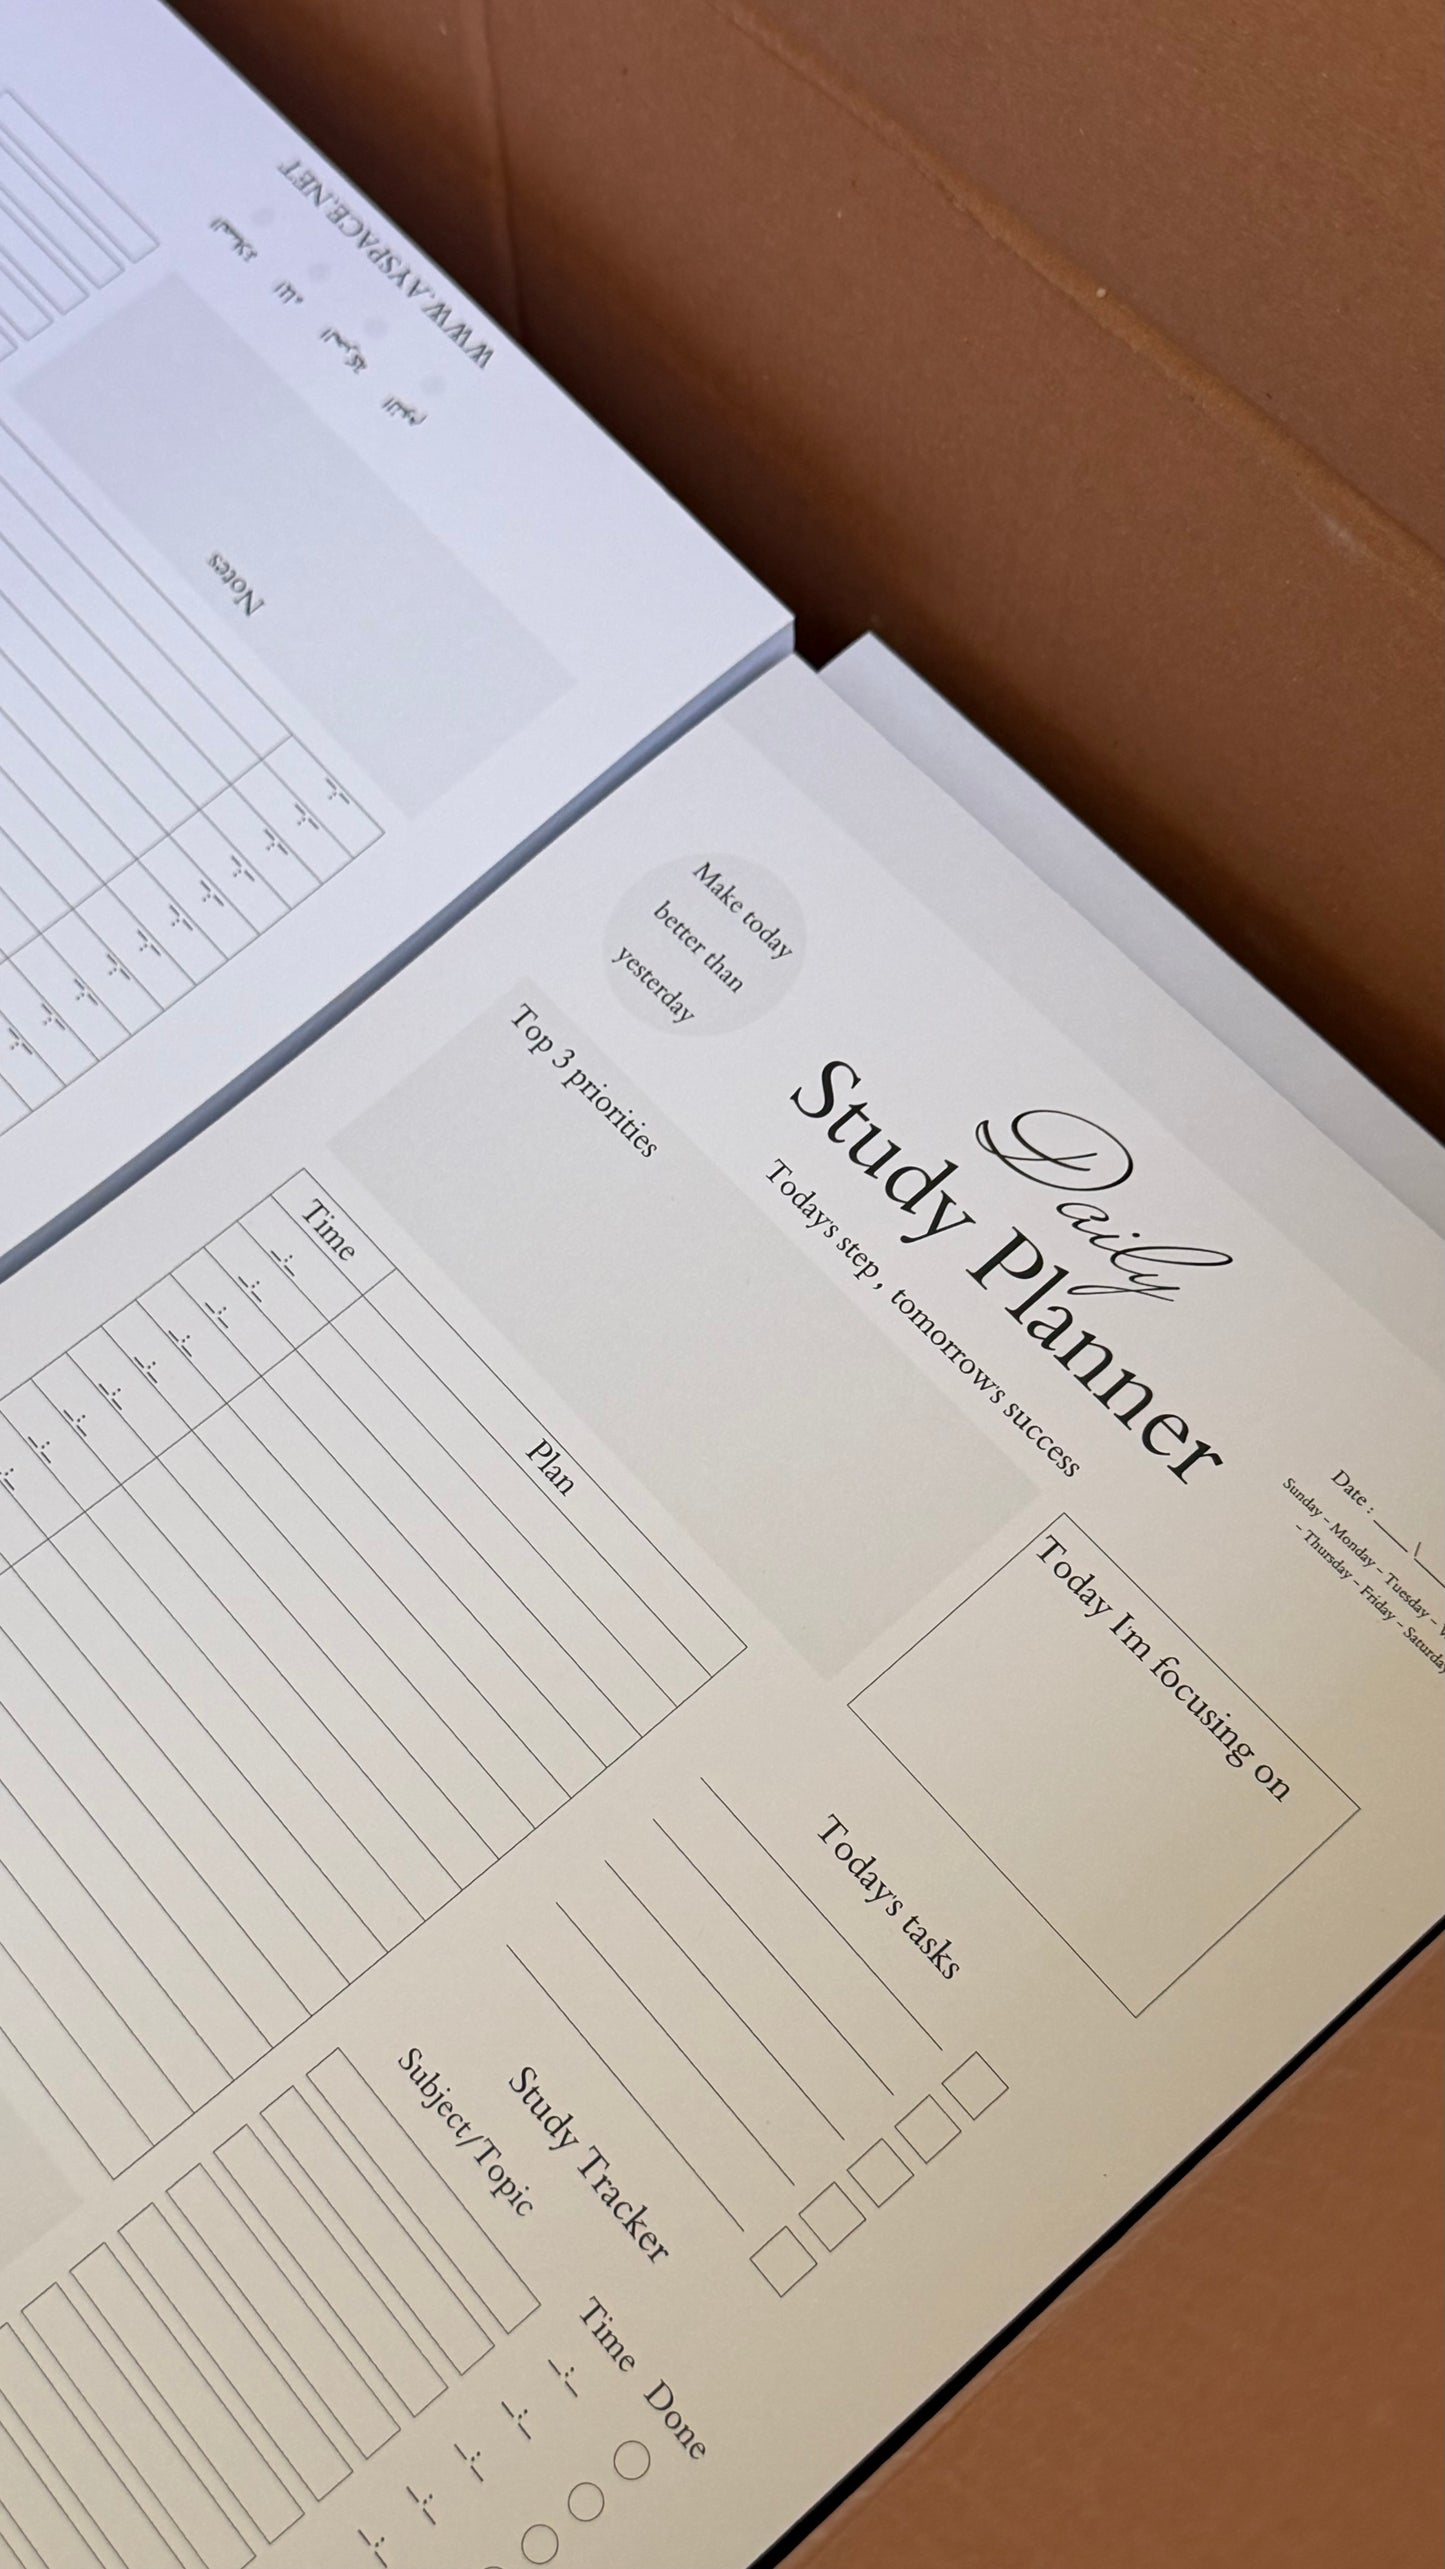 Make today
better than
yesterday
Daily
Study Planner
Today's step , tomorrow's success
Date : ___ \
Sunday – Monday – Tuesday –
– Thursday – Friday – Saturday
Top 3 priorities
Today I'm focusing on
Time
Plan
Today's tasks
Study Tracker
Subject/Topic
Time
Done
Notes
النوم
الحركة
الماء
الصلاة
WWW.AYSPACE.NET